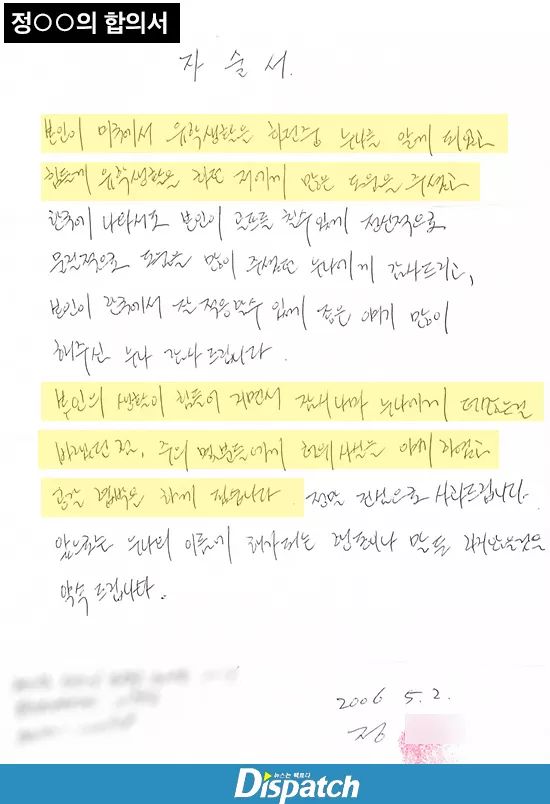 정○○의 합의서
자 술 서.
본인이 미국에서 유학생활을 하던중 누나를 알게 되었고
힘들게 유학생활을 하던 저에게 많은 도움을 주셨고
한국에 나와서도 본인이 골프를 칠수있게 전신적으로
물질적으로 도움을 많이 주셨던 누나에게 감사드리고,
본인이 한국에서 잘 적응할수 있게 좋은 얘기 많이
해주신 누나 감사드립니다.
본인의 생활이 힘들어 지면서 잠시나마 누나에게
바랬던 점, 주의 몇분들에게 허위사실을 얘기 하였고
공갈 협박을 하게 됩니다. 정말 진심으로 사과드립니다.
앞으로는 누나의 이름에 해가되는 행동이나 말을 하지않을것을
약속 드립니다.
2006 5. 2.
정
뉴스는 팩트다
Dispatch